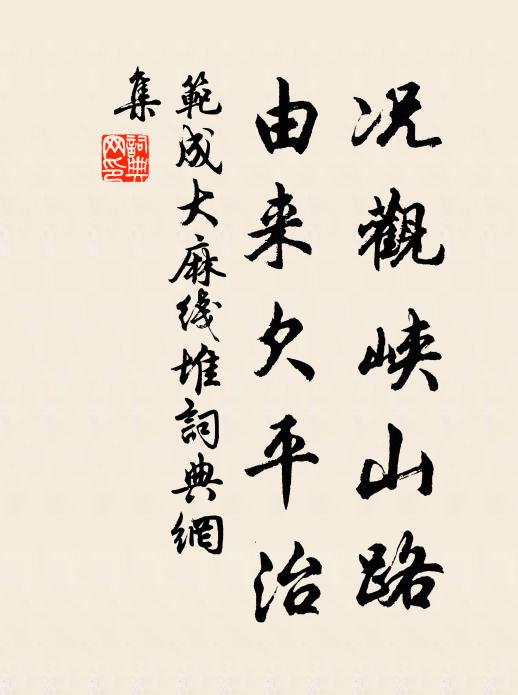 况觀峡山路
由来欠平治
範成大麻线堆詞典網
集
詞典
网印